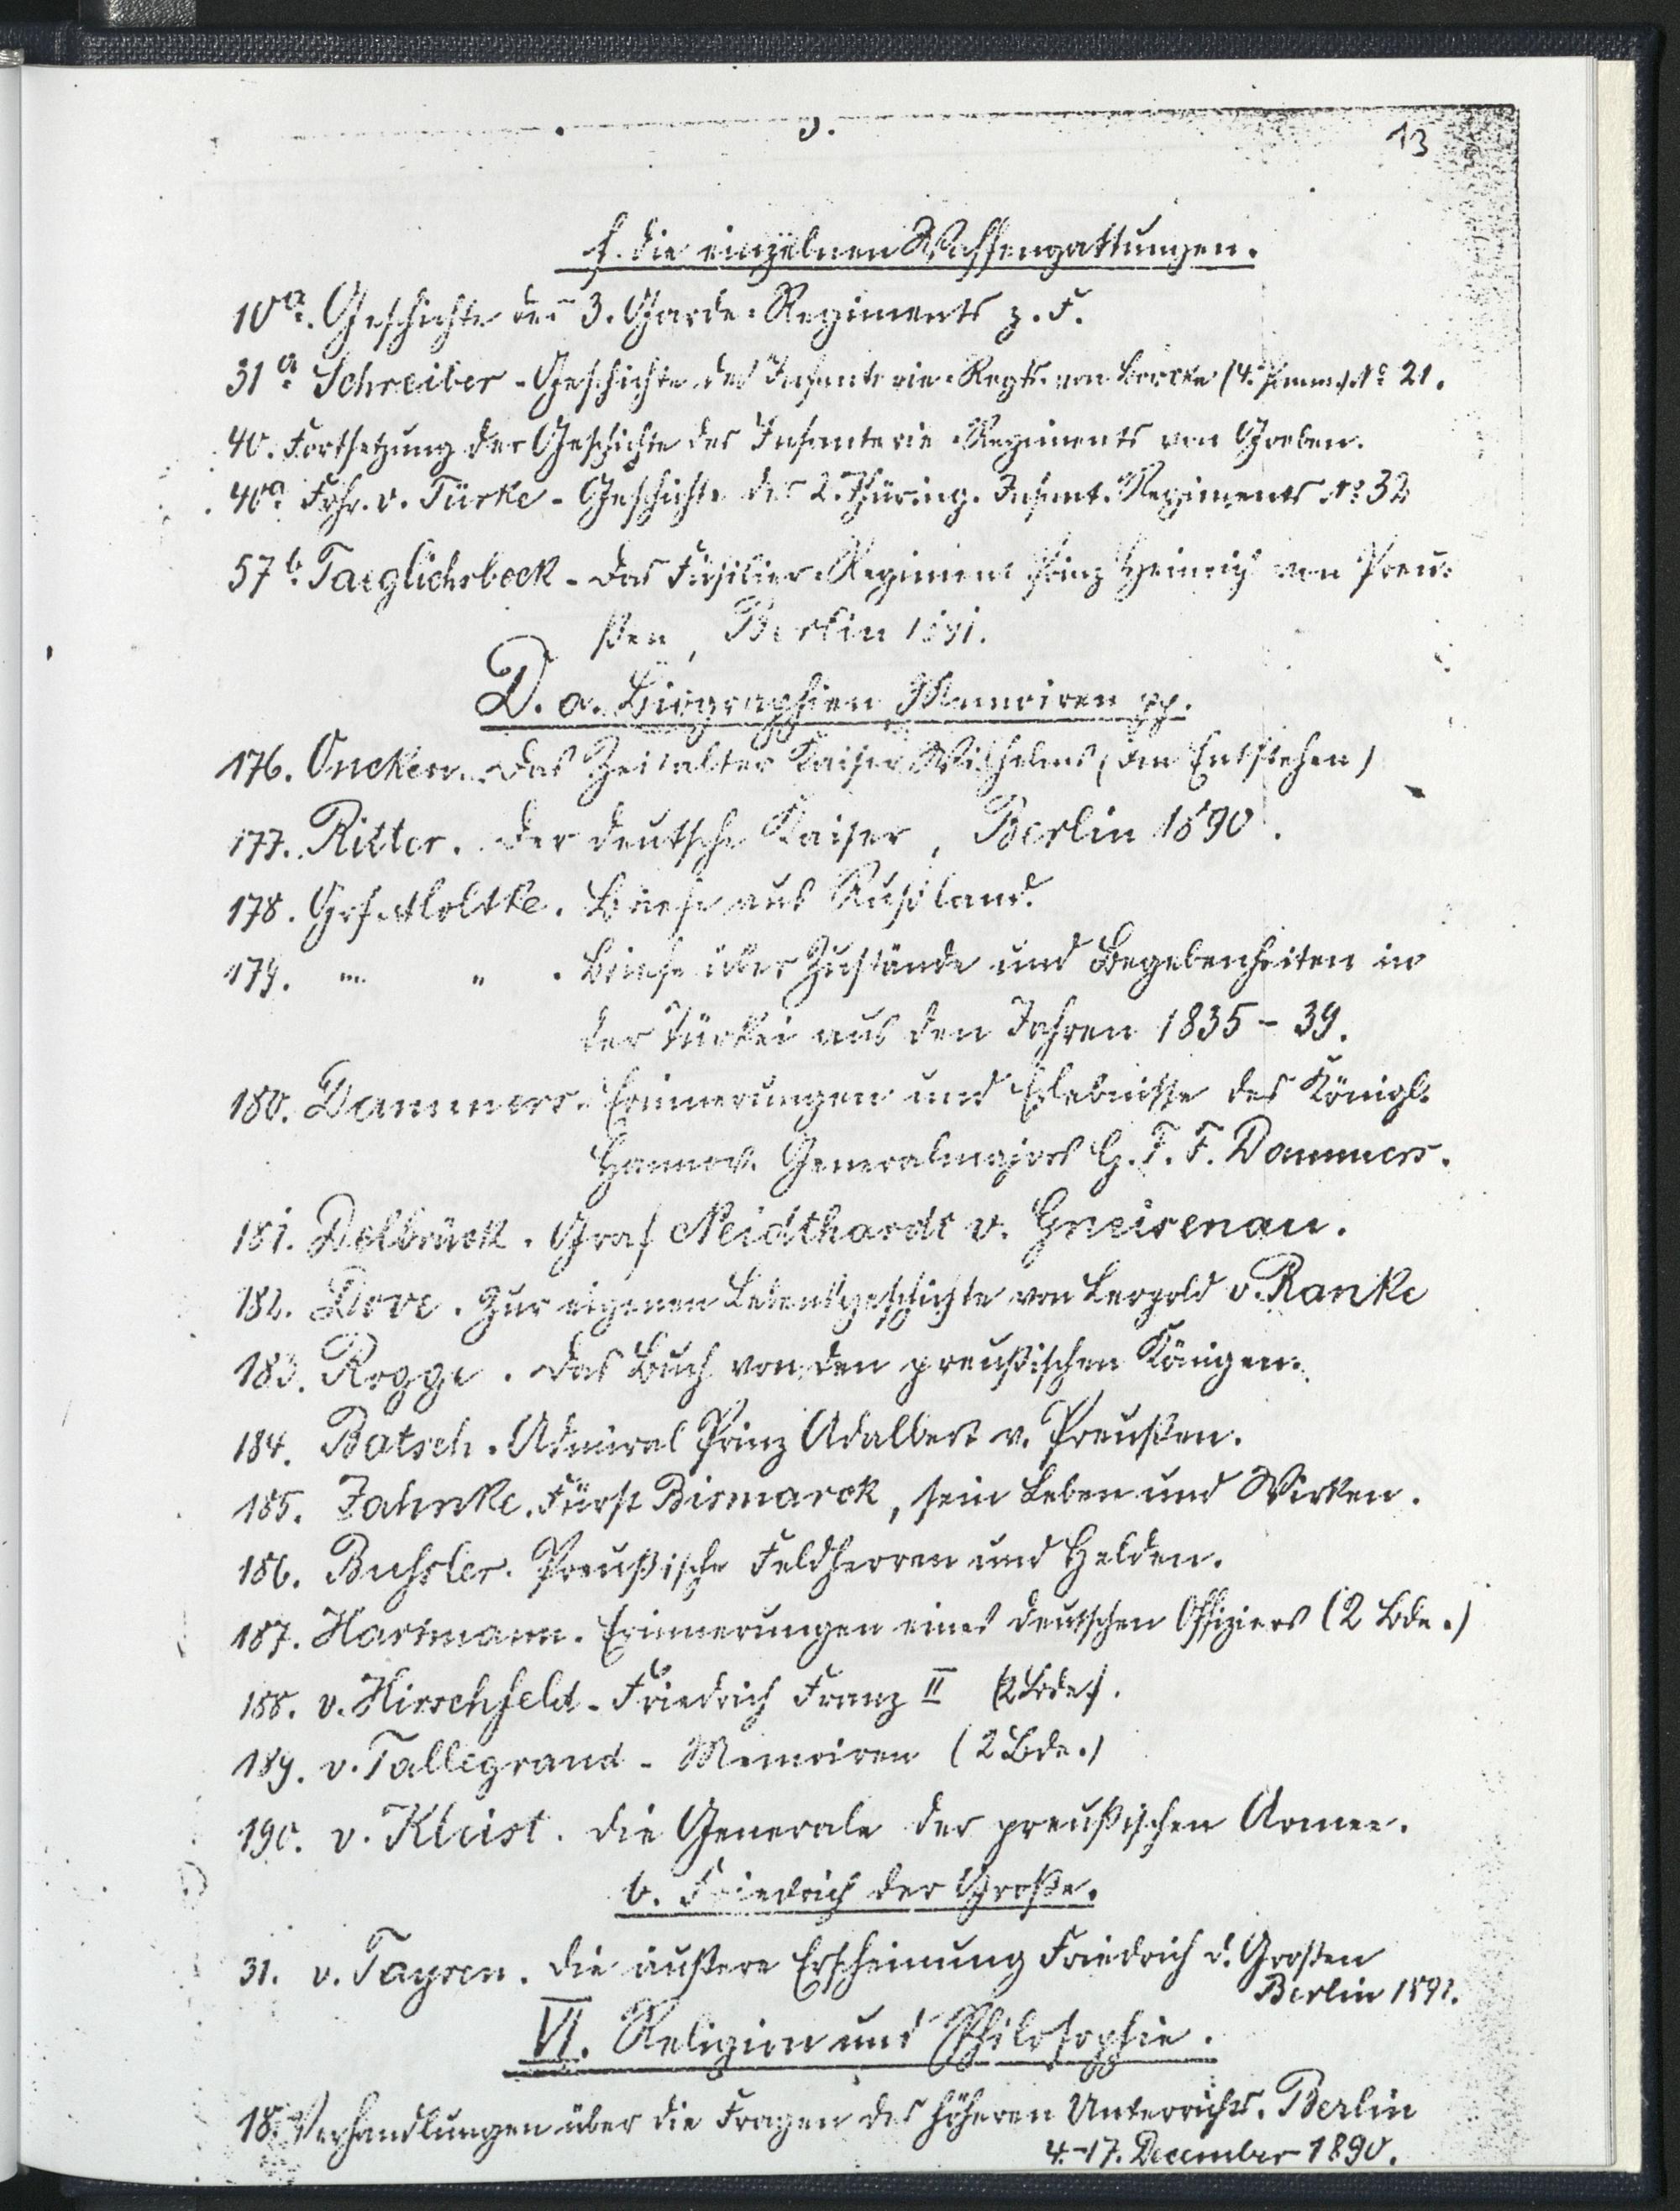 13
f. die einzelnen Waffengattungen.
10a. Geschichte des 3. Garde-Regiments z. F.
31a. Schreiber - Geschichte des Infanterie-Regts. von Borcke (4. Pomm.) No 21.
40. Fortsetzung der Geschichte des Infanterie-Regiments von Goeben.
40a. Frhr. v. Türke - Geschichte des 2. Thüring. Infant. Regiments No 32
57b. Taeglichsbeck - Das Füsilier-Regiment Prinz Heinrich von Preu-
ßen, Berlin 1891.
D. a. Biographien Memoiren pp.
176. Oncken. Das Zeitalter Kaiser Wilhelms (im Entstehen)
177. Ritter. Der deutsche Kaiser, Berlin 1890.
178. Grf. Moltke. Briefe aus Rußland.
179. " " . Briefe über Zustände und Begebenheiten in
der Türkei aus den Jahren 1835 - 39.
180. Dammers. Erinnerungen und Erlebnisse des Königl.
Hannov. Generalmajors G. F. F. Dammers.
181. Delbrück. Graf Neidthardt v. Gneisenau.
182. Dove. Zur eigenen Lebensgeschichte von Leopold v. Ranke
183. Rogge. Das Buch von den preußischen Königen.
184. Batsch. Admiral Prinz Adalbert v. Preußen.
185. Jahnke. Fürst Bismarck, sein Leben und Wirken.
186. Bußler. Preußische Feldherren und Helden.
187. Hartmann. Erinnerungen eines deutschen Offiziers (2 Bde.)
188. v. Hirschfeld - Friedrich Franz II (2 Bde.).
189. v. Tallegrand - Memoiren (2 Bde.)
190. v. Kleist. Die Generale der preußischen Armee.
b. Friedrich der Große.
31. v. Taysen. Die äußere Erscheinung Friedrich d. Großen
Berlin 1891.
VI. Religion und Philosophie.
18. Verhandlungen über die Fragen des höheren Unterrichts. Berlin
4.-17. December 1890.